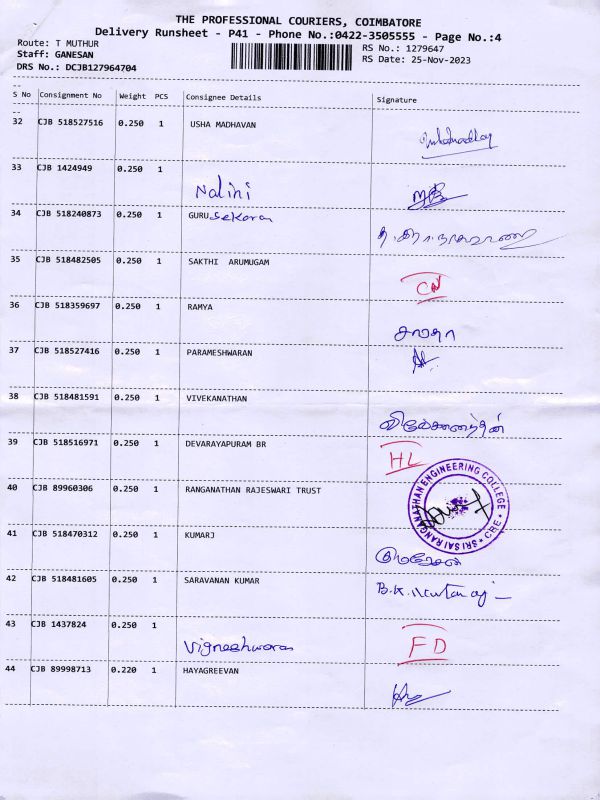 THE PROFESSIONAL COURIERS, COIMBATORE
Delivery Runsheet - P41 - Phone No.:0422-3505555 - Page No.:4
Route: T MUTHUR
Staff: GANESAN
DRS No.: DCJB127964704
RS No.: 1279647
RS Date: 25-Nov-2023
S No Consignment No Weight PCS Consignee Details Signature
32 CJB 518527516 0.250 1 USHA MADHAVAN
33 CJB 1424949 0.250 1 Nalini
34 CJB 518240873 0.250 1 GURU Sekaran
35 CJB 518482505 0.250 1 SAKTHI ARUMUGAM
36 CJB 518359697 0.250 1 RAMYA
37 CJB 518527416 0.250 1 PARAMESHWARAN
38 CJB 518481591 0.250 1 VIVEKANATHAN
39 CJB 518516971 0.250 1 DEVARAYAPURAM BR HL
40 CJB 89960306 0.250 1 RANGANATHAN RAJESWARI TRUST
SRI SAI RANGANATHAN ENGINEERING COLLEGE * CBE *
41 CJB 518470312 0.250 1 KUMARJ
42 CJB 518481605 0.250 1 SARAVANAN KUMAR
43 CJB 1437824 0.250 1 Vigneshwaran FD
44 CJB 89998713 0.220 1 HAYAGREEVAN